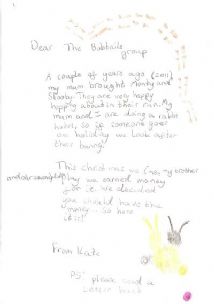 Dear The Bobtails
group
A couple of years ago (2011)
my mum brought Monty and
They are very happy
happy about in their run. My
mum and I are doing a rabbit
hotel, so if someone goes
on holiday we look after
their bunny.
This christmas we (me, my brother
we earned money
for it. We decided
you should have the
money... So here
it is!
From Kate
PS please send a
Letter back